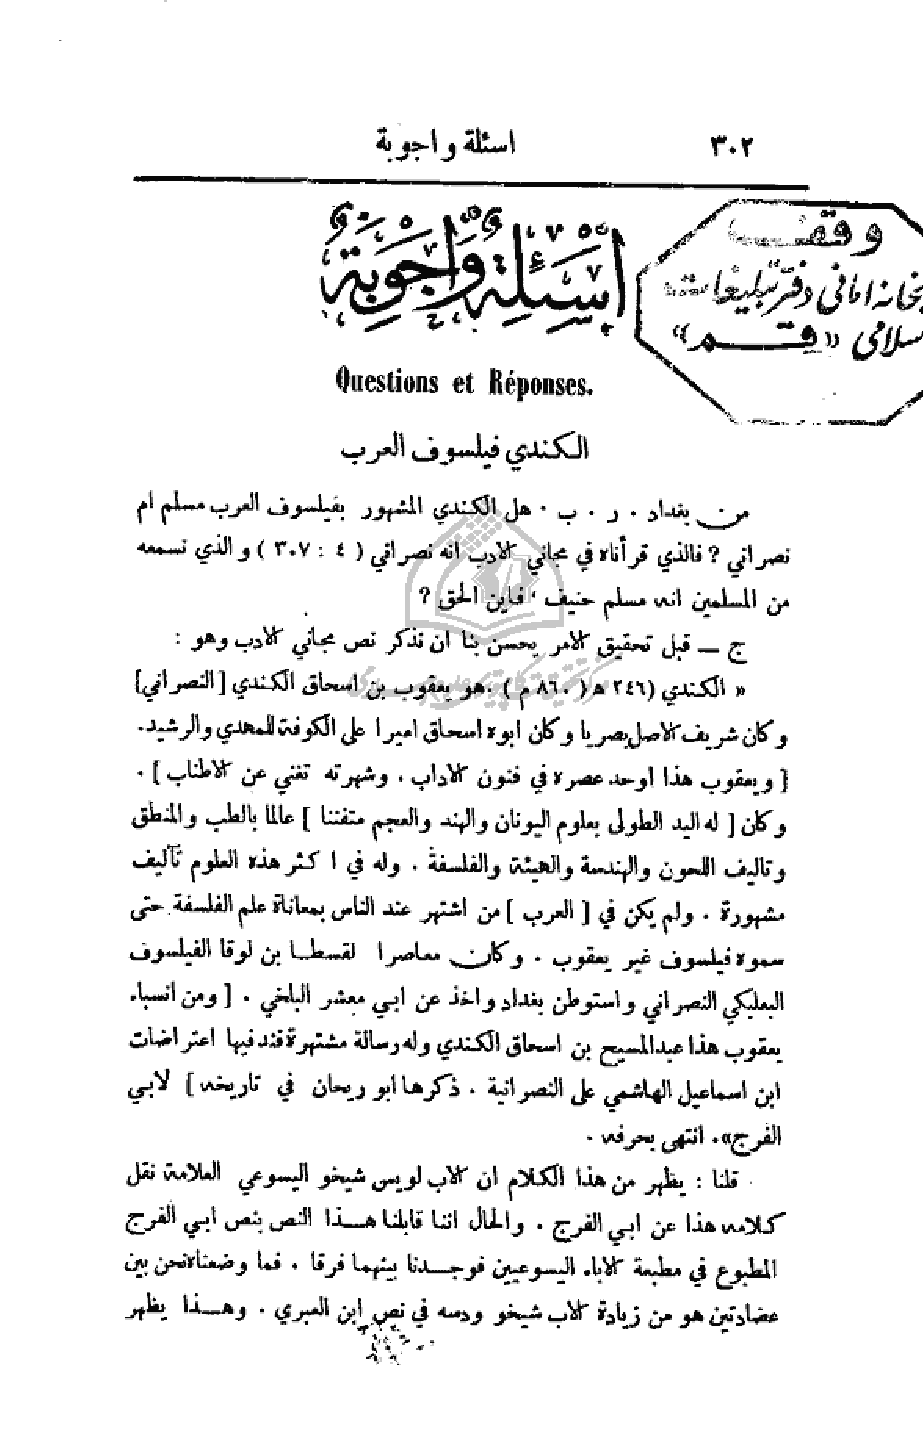 ٣٠٢ اسئلة و اجوبة
أسئلة وأجوبة
وقف
كتابخانه امانی دفتر تبلیغات
اسلامی «قم»
Questions et Réponses.
الكندي فيلسوف العرب
من بغداد . ر . ب . هل الكندي المشهور بفيلسوف العرب مسلم ام
نصراني ؟ فالذي قرأناه في مجاني الادب انه نصراني ( ٤ : ٣٠٧ ) والذي نسمعه
من المسلمين انه مسلم حنيف ، فاين الحق ؟
ج — قبل تحقيق الامر يحسن بنا ان نذكر نص مجاني الادب وهو :
« الكندي (٢٤٦ هـ ( ٨٦٠ م ) . هو يعقوب بن اسحاق الكندي [النصراني]
وكان شريف الاصل بصريا وكان ابوه اسحاق اميرا على الكوفة للمهدي والرشيد.
[ ويعقوب هذا اوحد عصره في فنون الاداب . وشهرته تغني عن الاطناب ] .
وكان [ له اليد الطولى بعلوم اليونان والهند والعجم متفننا ] عالما بالطب والمنطق
وتاليف اللحون والهندسة والهيئة والفلسفة . وله في ا كثر هذه العلوم تآليف
مشهورة . ولم يكن في [ العرب ] من اشتهر عند الناس بمعاناة علم الفلسفة حتى
سموه فيلسوف غير يعقوب . وكان معاصرا لقسطا بن لوقا الفيلسوف
البعلبكي النصراني واستوطن بغداد واخذ عن ابي معشر البلخي . [ ومن انسباء
يعقوب هذا عبدالمسيح بن اسحاق الكندي وله رسالة مشتهرة فند فيها اعتراضات
ابن اسماعيل الهاشمي على النصرانية . ذكرها ابو ريحان في تاريخه ] لابي
الفرج». انتهى بحرفه .
قلنا : يظهر من هذا الكلام ان الاب لويس شيخو اليسوعي العلامة نقل
كلامه هذا عن ابي الفرج . والحال اننا قابلنا هذا النص بنص ابي الفرج
المطبوع في مطبعة الاباء اليسوعيين فوجدنا بينهما فرقا . فما وضعناه نحن بين
عضادتين هو من زيادة الاب شيخو ودسه في نص ابن العبري . وهذا يظهر